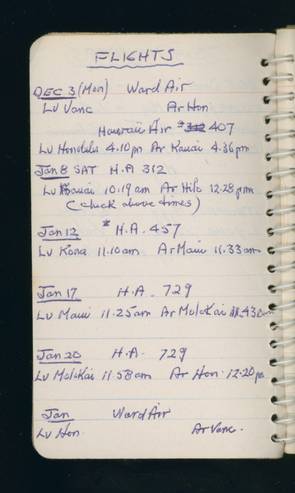 FLIGHTS
DEC 3 (Mon) Ward Air
Lv Vanc Ar Hon
Hawaii Air # 407
Lv Honolulu 4.10pm Ar Kauai 4.36pm
Jan 8 SAT H.A 312
Lv Kauai 10.19am Ar Hilo 12.28pm
(check above times)
Jan 12 * H.A. 457
Lv Kona 11.10am Ar Maui 11.33am
Jan 17 H.A. 729
Lv Maui 11.25am Ar Molokai 11.43am
Jan 20 H.A. 729
Lv Molokai 11.58am Ar Hon. 12.20pm
Jan Ward Air
Lv Hon. Ar Vanc.